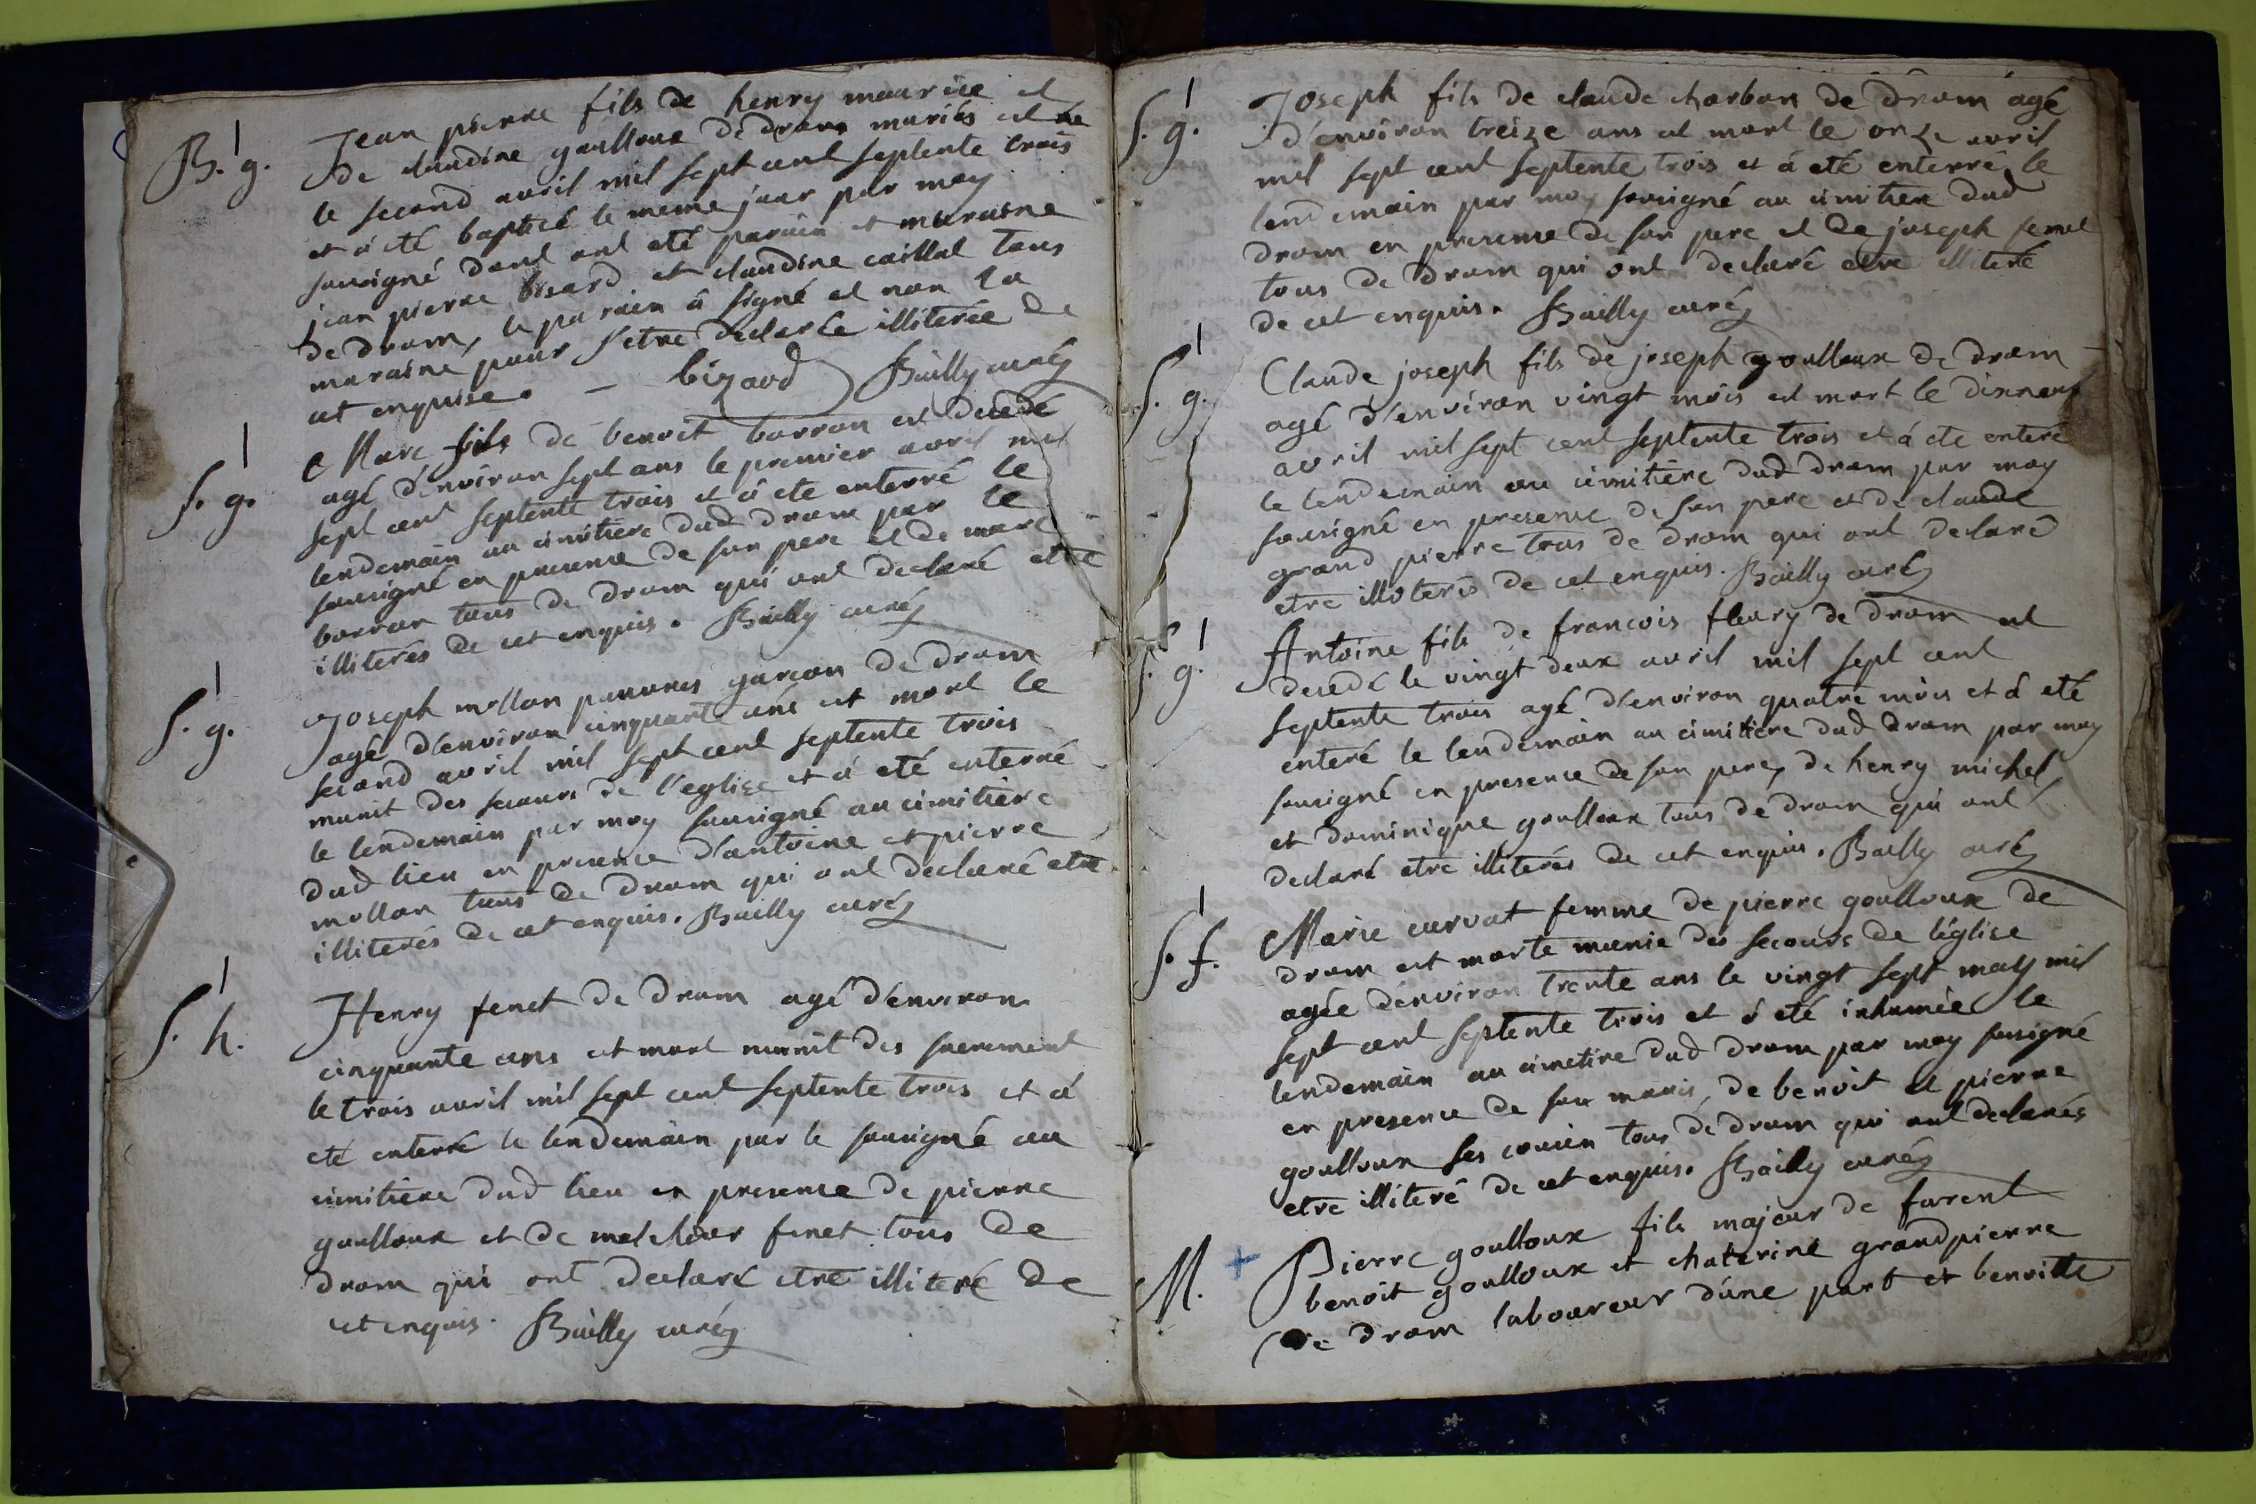 B. g.
Jean pierre fils de henry maurice et
de claudine goulloux de dram mariés est né
le second avril mil sept cent septente trois
et á été baptisé le meme jour par moy
sousigné dont ont eté parain et maraine
jean pierre bisard et claudine caillat tous
de dram, le parain á signé et non la
maraine pour s'etre declarée illiterée de
cet enquise. — bizard Bailly curé
S. g.
Marc fils de benoit borron est decedé
agé d'environ sept ans le premier avril mil
sept cent septente trois et á eté enterré le
lendemain au cimitiere dud dram par le
sousigné en presence de son pere et de marc
borron tous de dram qui ont declaré etre
illiterés de cet enquis. Bailly curé
S. g.
Joseph mollon garcon de dram
agé d'environ cinquante ans est mort le
second avril mil sept cent septente trois
munit des secours de l'eglise et á eté enterré
le lendemain par moy sousigné au cimitiere
dud lieu en presence d'antoine et pierre
mollon tous de dram qui ont declaré etre
illiterés de cet enquis. Bailly curé
S. h.
Henry fenet de dram agé d'environ
cinquante ans est mort munit des sacrement
le trois avril mil sept cent septente trois et á
eté enterré le lendemain par le sousigné au
cimitiere dud lieu en presence de pierre
goulloux et de melchior fenet tous de
dram qui ont declaré etre illiteré de
cet enquis. Bailly curé
S. g.
Joseph fils de claude charbon de dram agé
d'environ treize ans est mort le onze avril
mil sept cent septente trois et á eté enterré le
lendemain par moy sousigné au cimitiere dud
dram en presence de son pere et de joseph fenet
tous de dram qui ont declaré etre illiteré
de cet enquis. Bailly curé
S. g.
Claude joseph fils de joseph goulloux de dram
agé d'environ vingt mois est mort le dixneuf
avril mil sept cent septente trois et á eté enteré
le lendemain au cimitiere dud dram par moy
sousigné en presence de son pere et de claude
grand pierre tous de dram qui ont declaré
etre illiterés de cet enquis. Bailly curé
S. g.
Antoine fils de francois fleury de dram est
decedé le vingt deux avril mil sept cent
septente trois agé d'environ quatre mois et á eté
enteré le lendemain au cimitiere dud dram par moy
sousigné en presence de son pere, de henry michel
et dominique goulloux tous de dram qui ont
declaré etre illiterés de cet enquis. Bailly curé
S. f.
Marie curvat femme de pierre goulloux de
dram est morte munie des secours de l'église
agée d'environ trente ans le vingt sept may mil
sept cent septente trois et á eté inhumée le
lendemain au cimetire dud dram par moy sousigné
en presence de son maris, de benoit et pierre
goulloux ses cousin tous de dram qui ont declarés
etre illiteré de cet enquis. Bailly curé
M. +
Pierre goulloux fils majeur de furent
benoit goulloux et chaterine grandpierre
de dram laboureur d'une part et benoitte